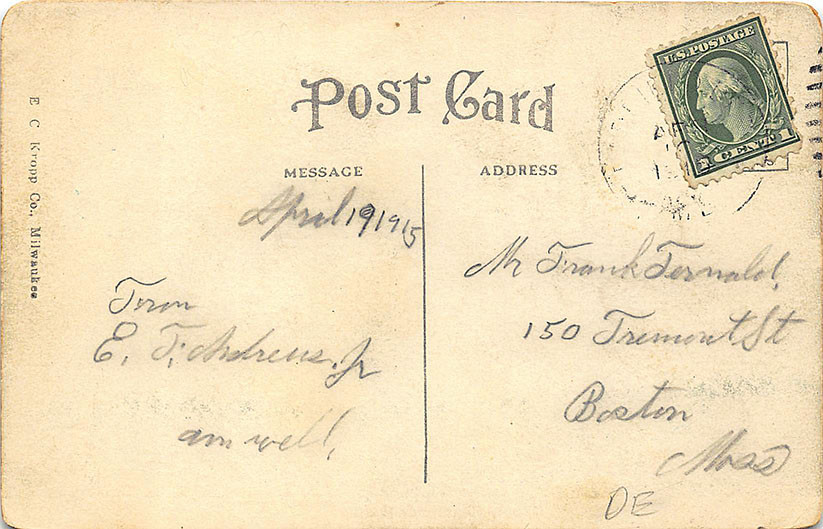 POST CARD
U.S. POSTAGE
1 CENT 1
MESSAGE
ADDRESS
E. C. Kropp Co., Milwaukee
April 19 1915
From
E. F. Andrews, Jr
am well,
Mr Frank Fernald,
150 Tremont St
Boston
Mass
DE